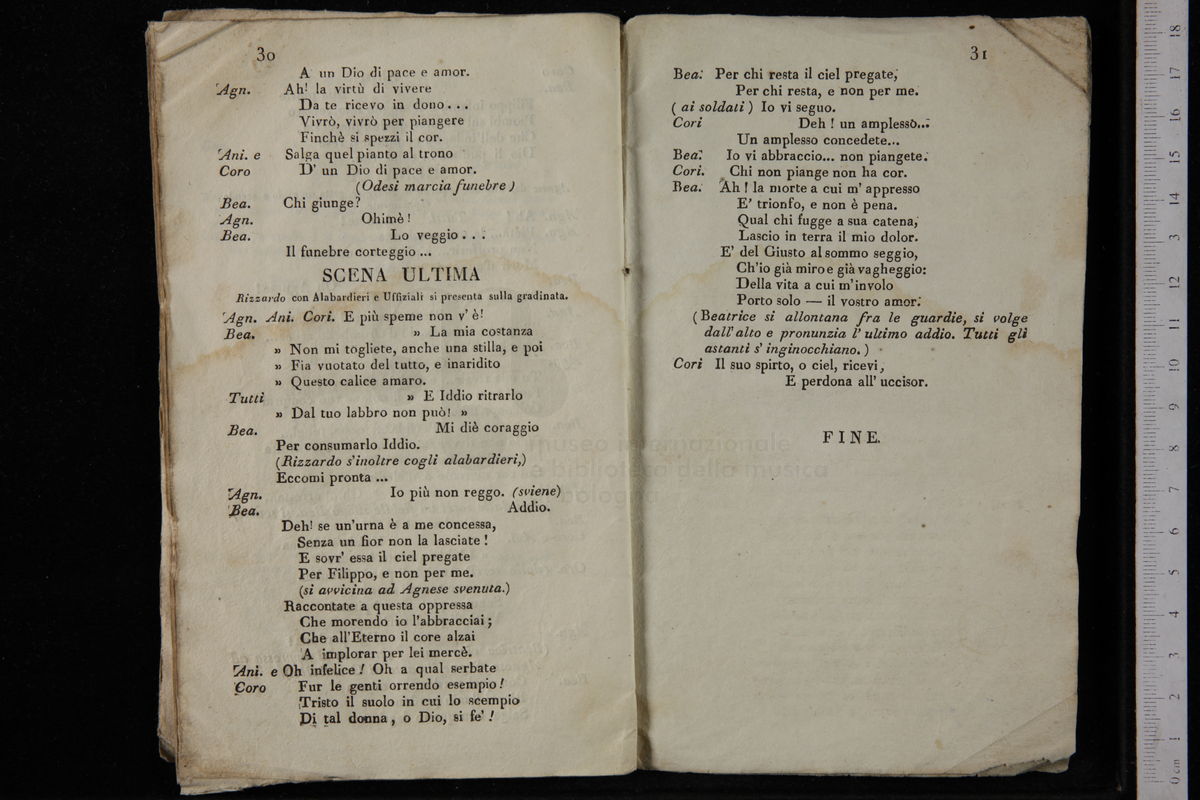 30
A un Dio di pace e amor.
Agn. Ah! la virtù di vivere
Da te ricevo in dono...
Vivrò, vivrò per piangere
Finchè si spezzi il cor.
Ani. e Salga quel pianto al trono
Coro D' un Dio di pace e amor.
(Odesi marcia funebre)
Bea. Chi giunge?
Agn. Ohimè!
Bea. Lo veggio...
Il funebre corteggio...
SCENA ULTIMA
Rizzardo con Alabardieri e Uffiziali si presenta sulla gradinata.
Agn. Ani. Cori. E più speme non v' è!
Bea. » La mia costanza
» Non mi togliete, anche una stilla, e poi
» Fia vuotato del tutto, e inaridito
» Questo calice amaro.
Tutti » E Iddio ritrarlo
» Dal tuo labbro non può! »
Bea. Mi diè coraggio
Per consumarlo Iddio.
(Rizzardo s'inoltre cogli alabardieri,)
Eccomi pronta...
Agn. Io più non reggo. (sviene)
Bea. Addio.
Deh! se un'urna è a me concessa,
Senza un fior non la lasciate!
E sovr' essa il ciel pregate
Per Filippo, e non per me.
(si avvicina ad Agnese svenuta.)
Raccontate a questa oppressa
Che morendo io l'abbracciai;
Che all'Eterno il core alzai
A implorar per lei mercè.
Ani. e Oh infelice! Oh a qual serbate
Coro Fur le genti orrendo esempio!
Tristo il suolo in cui lo scempio
Di tal donna, o Dio, si fe'!
31
Bea. Per chi resta il ciel pregate,
Per chi resta, e non per me.
(ai soldati) Io vi seguo.
Cori Deh! un amplesso...
Un amplesso concedete...
Bea. Io vi abbraccio... non piangete.
Cori. Chi non piange non ha cor.
Bea. Ah! la morte a cui m' appresso
E' trionfo, e non è pena.
Qual chi fugge a sua catena,
Lascio in terra il mio dolor.
E' del Giusto al sommo seggio,
Ch'io già miro e già vagheggio:
Della vita a cui m'involo
Porto solo — il vostro amor.
(Beatrice si allontana fra le guardie, si volge
dall' alto e pronunzia l' ultimo addio. Tutti gli
astanti s' inginocchiano.)
Cori Il suo spirto, o ciel, ricevi,
E perdona all' uccisor.
FINE.
museo internazionale
e biblioteca della musica
bologna
0 cm 1 2 3 4 5 6 7 8 9 10 11 12 13 14 15 16 17 18